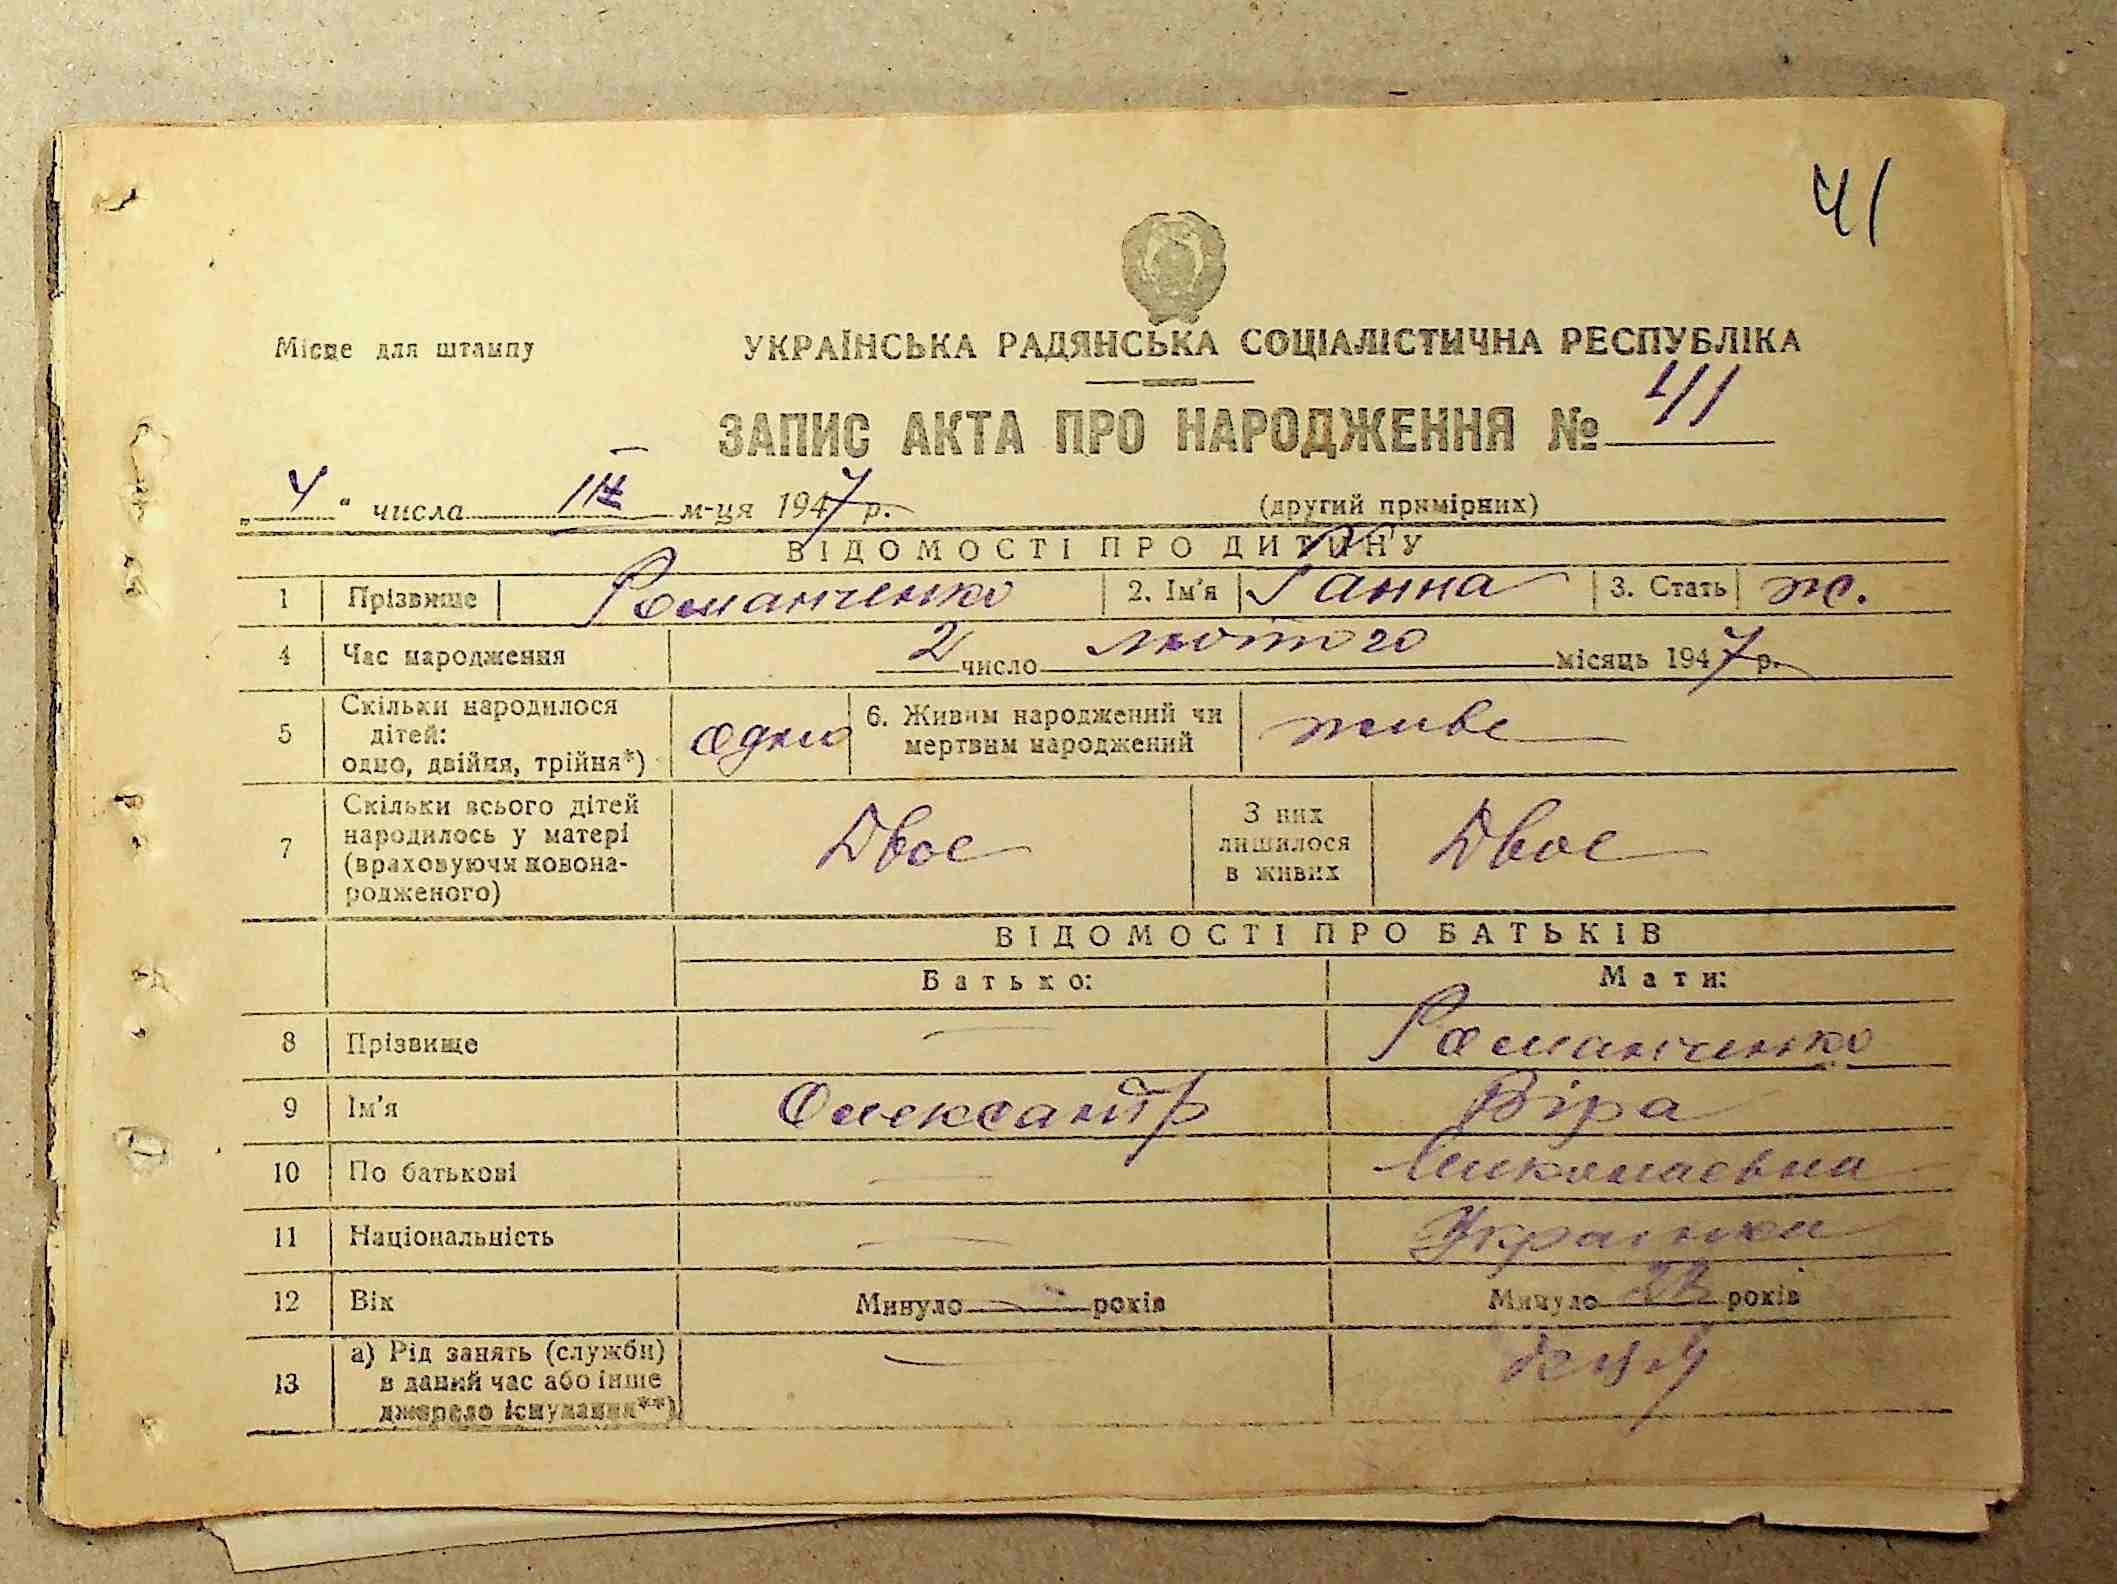 41
Місце для штампу
УКРАЇНСЬКА РАДЯНСЬКА СОЦІАЛІСТИЧНА РЕСПУБЛІКА
ЗАПИС АКТА ПРО НАРОДЖЕННЯ № 41
„ 4 “ числа III м-ця 1947 р. (другий примірних)
ВІДОМОСТІ ПРО ДИТИНУ
1 Прізвище Романченко 2. Ім'я Ганна 3. Стать ж.
4 Час народження 2 число лютого місяць 1947 р.
5 Скільки народилося дітей: одно, двійня, трійня*) одно 6. Живим народжений чи мертвим народжений живе
7 Скільки всього дітей народилось у матері (враховуючи новона-родженого) Двоє З них лишилося в живих Двоє
ВІДОМОСТІ ПРО БАТЬКІВ
Батько: Мати:
8 Прізвище — Романченко
9 Ім'я Олександр Віра
10 По батькові — Миколаєвна
11 Національність — Українка
12 Вік Минуло — років Минуло 23 років
13 а) Рід занять (служби) в даний час або інше джерело існування**) —